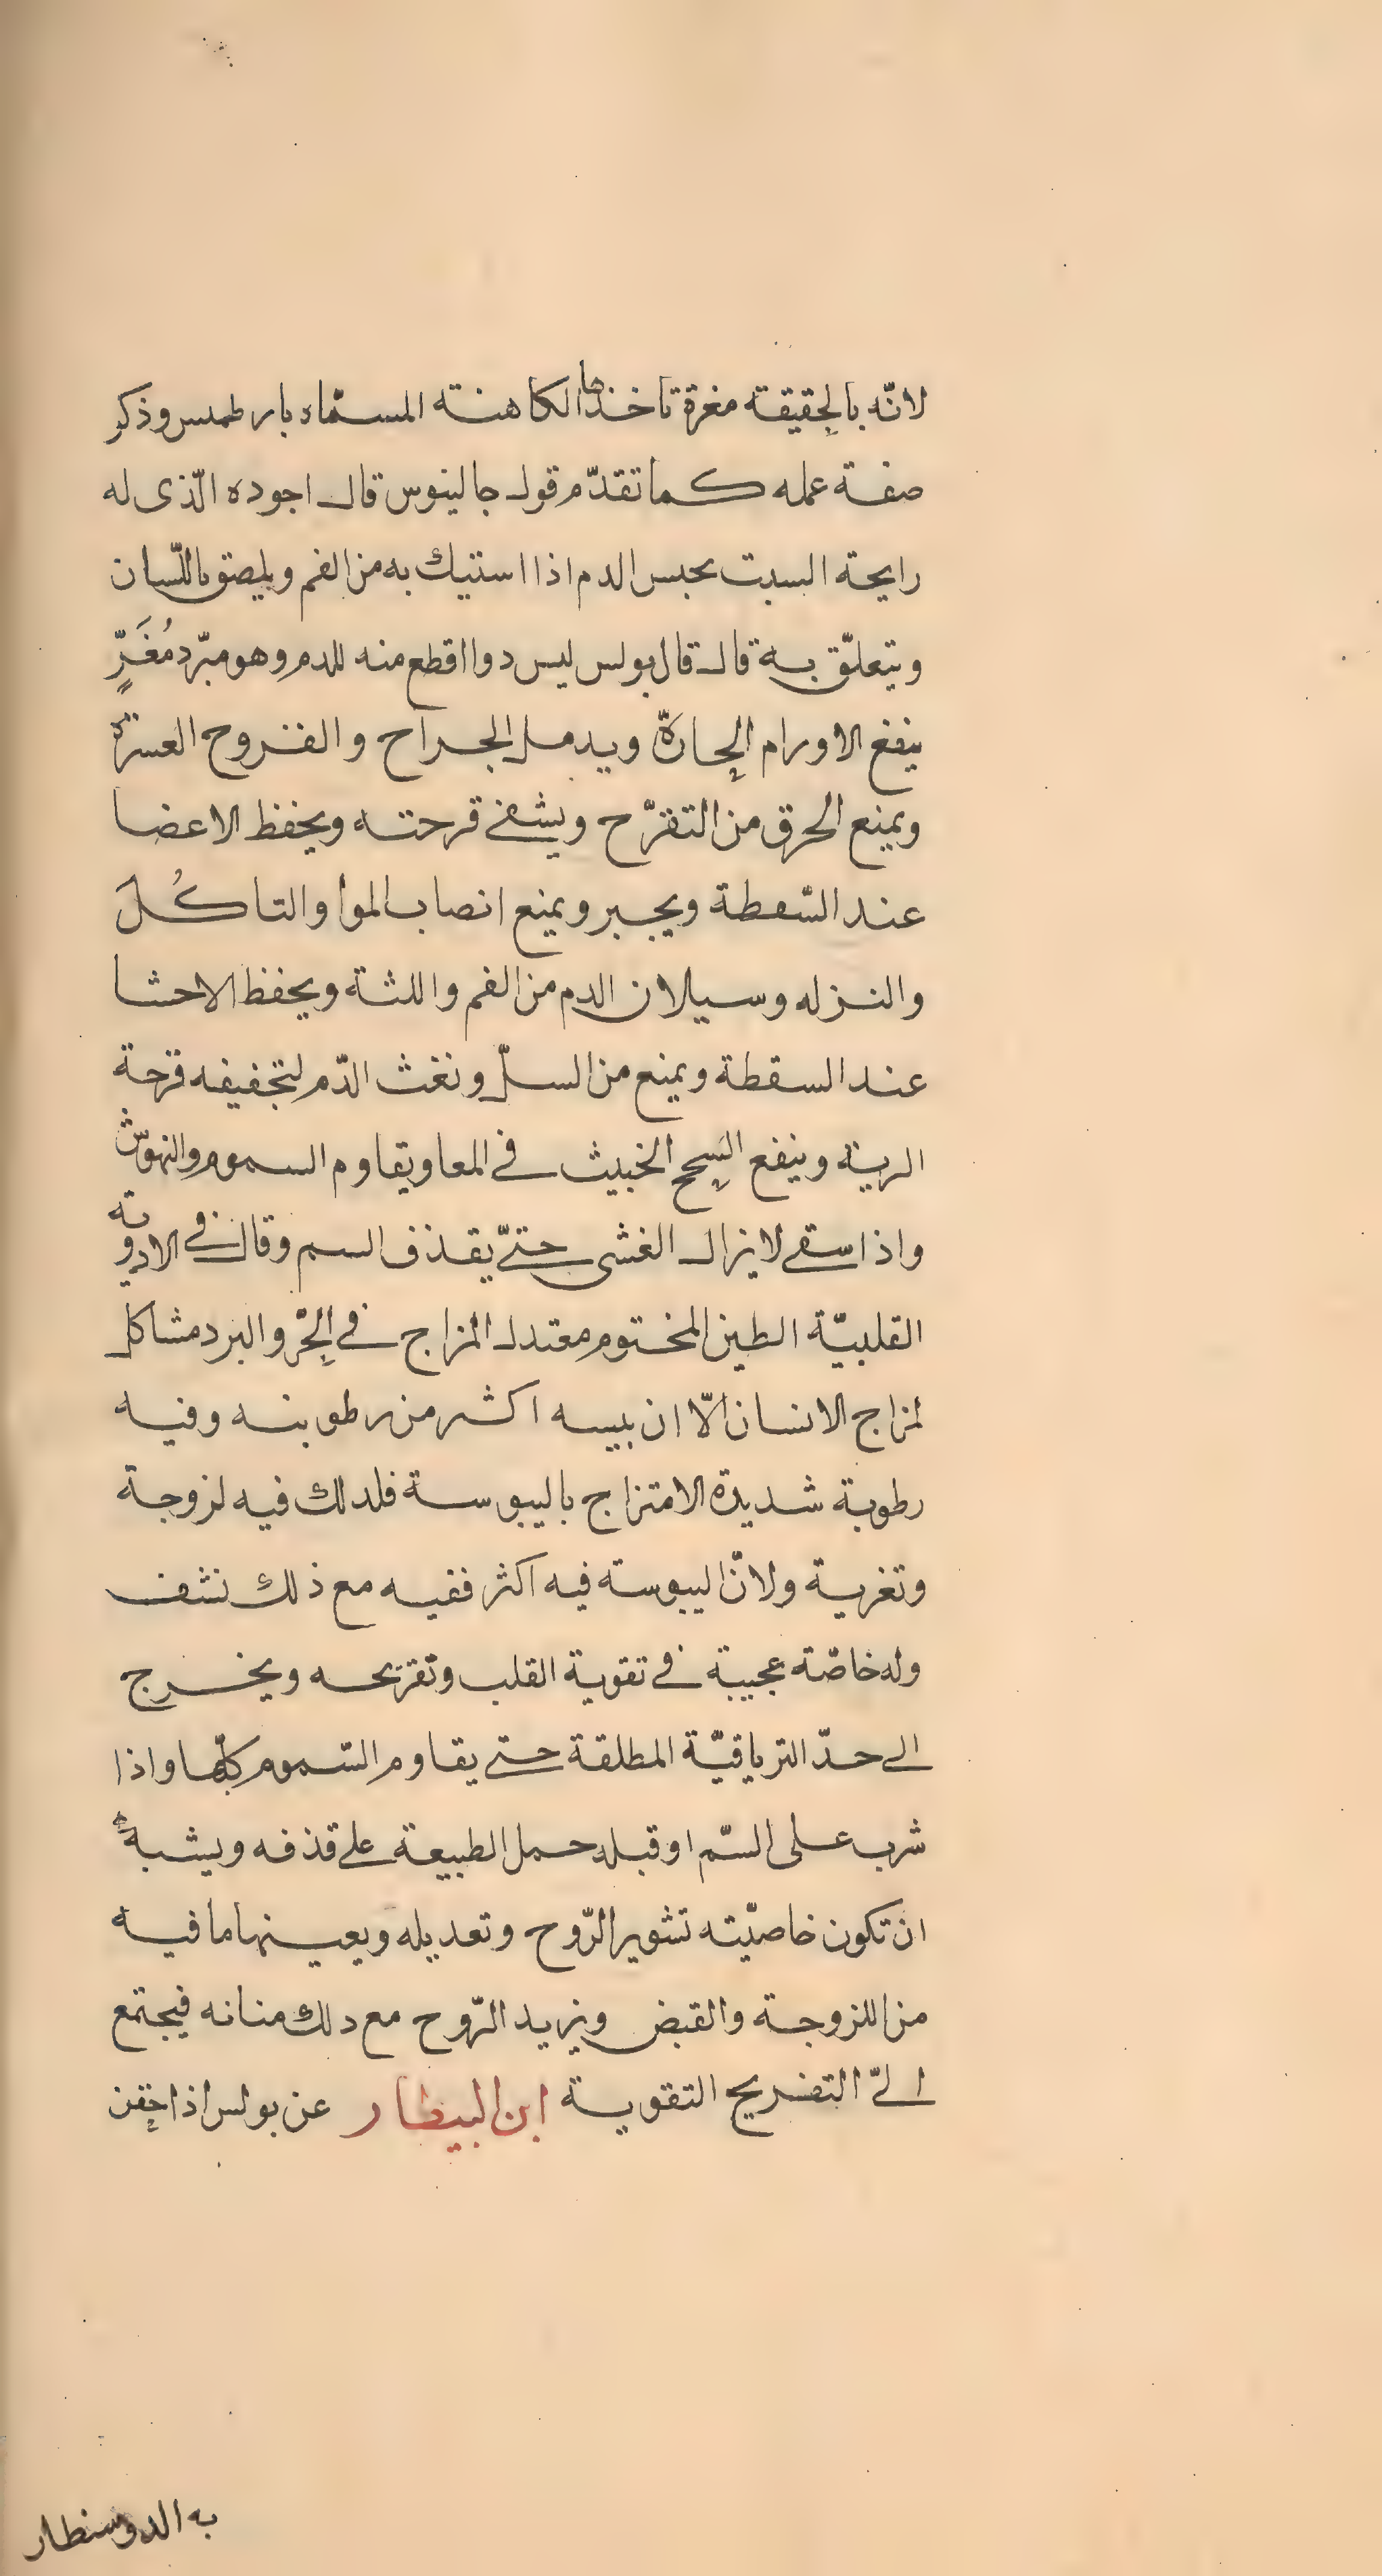 لانّه بالحقيقة مغرة تاخذها الكاهنة المسمّاه بارطمس وذكر
صفة عمله كما تقدّم قول جالينوس قال اجوده الّذى له
رايحة السبت يحبس الدم اذا استيك به من الفم ويلصق باللّسان
ويتعلّق به قال قال بولس ليس دوا اقطع منه للدم وهو مبرّد مُغَرٍّ
ينفع الاورام الحارّة ويدمل الجراح والقروح العسرة
ويمنع الحرق من التقرّح ويشفى قرحته ويحفظ الاعضا
عند السّقطة ويجبر ويمنع انصاب الموا والتاكُل
والنزله وسيلان الدم من الفم واللثة ويحفظ الاحشا
عند السقطة ويمنع من السلّ ونفث الدّم لتجفيفه قرحة
الرية وينفع السحج الخبيث فى المعا ويقاوم السموم والنهوش
واذا سقى لا يزال الغشى حتّى يقذف السم وقال فى الادوية
القلبيّة الطين المختوم معتدل المزاج فى الحرّ والبرد مشاكل
لمزاج الانسان الّا ان يبسه اكثر من رطوبته وفيه
رطوبة شديدة الامتزاج باليبوسة فلدلك فيه لزوجة
وتغرية ولانّ اليبوسة فيه اكثر ففيه مع ذلك نشف
وله خاصّة عجيبة فى تقوية القلب وتفريحه ويخرج
الى حدّ الترياقيّة المطلقة حتى يقاوم السّموم كلّها واذا
شرب على السّم او قبله حمل الطبيعة على قذفه ويشبه
ان تكون خاصيّته تنوير الرّوح وتعديله ويعينها ما فيه
من اللزوجة والقبض ويزيد الرّوح مع دلك متانه فيجتمع
الىّ التفريح التقوية ابن البيطار عن بولس اذا احتقن
به الدوسنطار